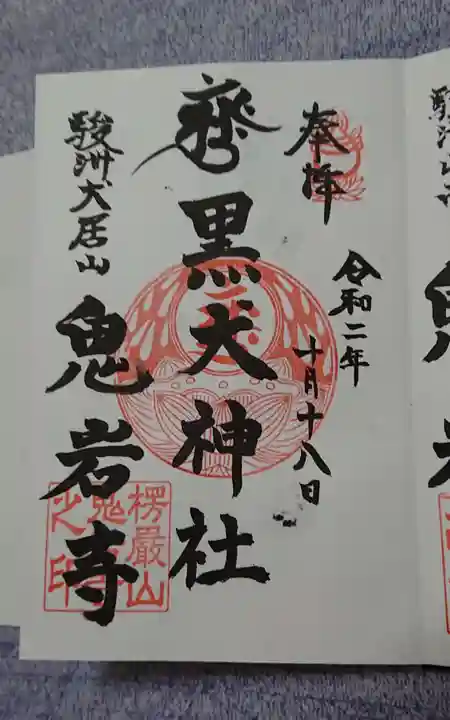 奉拝
令和二年
十月十八日
黒犬神社
駿洲犬居山
鬼岩寺
楞嚴山
鬼
之印